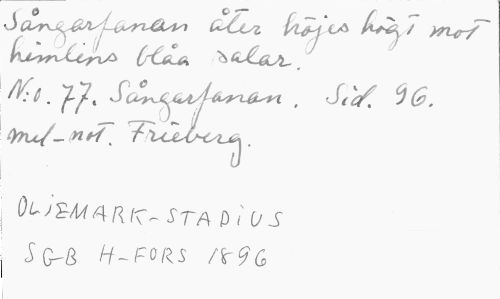 Sångarfanan åter höjes högt mot
himlens blåa salar.
N:o. 77. Sångarfanan. Sid. 96.
mel-not. Frieberg.
OLiEMARK-STADiUS
SGB H-FORS 1896